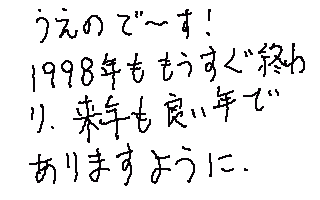 うえので〜す!
1998年ももうすぐ終わ
り、来年も良い年で
ありますように.